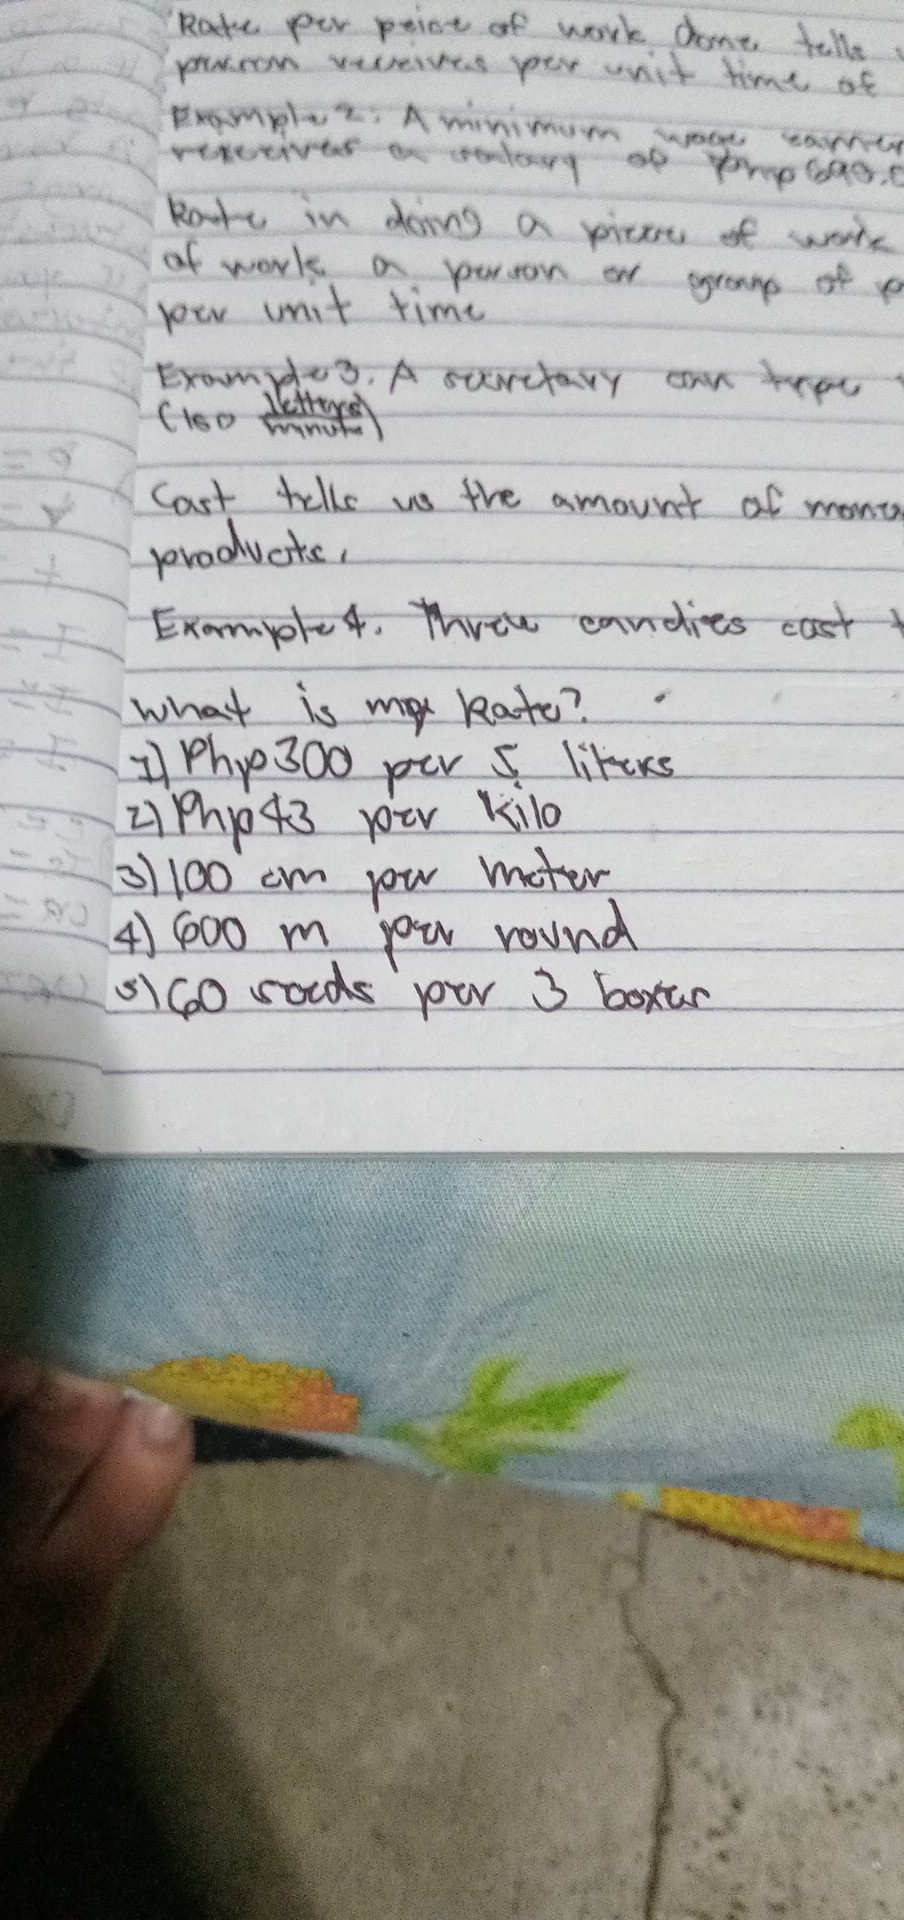 Rate per peice of work done tells
person receives per unit time of
Example 2. A minimum wage earner
receives a salary of Php 690.
Rate in doing a piece of work
of work a person or group of p
per unit time
Example 3. A secretary can type
(150 letters/minute)
Cost tells us the amount of money
products.
Example 4. Three candies cost t
What is my Rate?
1) Php300 per 5 liters
2) Php43 per kilo
3) 100 cm per meter
4) 600 m per round
5) 60 seeds per 3 boxes